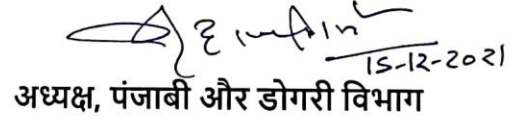 15-12-2021
अध्यक्ष, पंजाबी और डोगरी विभाग